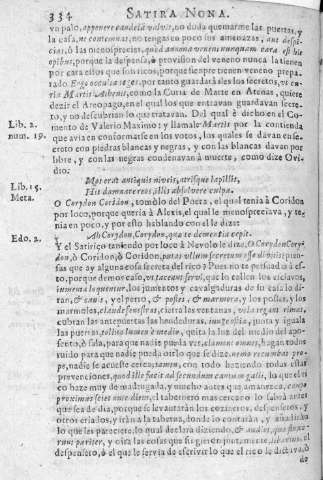 334 SATIRA NONA.
vn palo, apponere candelã valvis, no dudã quemarme las puertas, y
la casa, ne contemnas, no tengas en poco sus amenazas, aut despi-
cias, ò las menosprecies, quòd
opibus, porque la despensa, ò provision del veneno nunca la tienen
por cara ellos que son ricos, porque siempre tienen veneno prepa-
rado Ergo occultas teges, por tanto guardarà los secretos, vt cu-
ria Martis Athenis, como la Curia de Marte en Atenas, quiere
dezir el Areopago, en el qual los que entravan guardavan secre-
to, y no descubrian lo que tratavan. Del qual è dicho en el Co-
Lib. 2. mento de Valerio Maximo: y llamale Martis por la contienda
num. 19. que avia en conformarse en los votos, los quales se davan en se-
creto con piedras blancas y negras, y con las blancas davan por
libre, y con las negras condenavan à muerte, como dize Ovi-
dio.
Lib. 15. Mos erat antiquis niveis, atrisque lapillis,
Meta. His damnare reos, illis absolvere culpa.
O Corydon Coridon, tomólo del Poeta, el qual tenia à Coridon
por loco, porque queria à Alexis, el qual le menospreciava, y te-
nia en poco, y por esto hablando con el le dize:
Edo. 2. Ah Corydon, Corydon, quæ te dementia cepit.
Y el Satirico teniendo por loco à Nevolo le dize, O Corydon Cory-
don, ò Coridon, ò Coridon, putas vllum secretum esse divitis? pien-
sas que ay alguna cosa secreta del rico? Pues no te persuadas à esto,
porque demos caso, vt taceant servi, que lo callen los esclavos,
iumenta loquentur, los jumentos y cavalgaduras de su casa lo di-
ran, & canis, y el perro, & postes, & marmora, y los postes, y los
marmoles, claude fenestras, cierra las ventanas, vela tegant rimas,
cubran las antepuertas las hendeduras, iunge ostia, junta y iguala
las puertas, tollito lumen è medio, quita la luz del medio del apo-
sento, ò sala, para que nadie pueda ver, clament omnes, hagan todos
ruido para que nadie pueda oir lo que se dize, nemo recumbat pro-
pe, nadie se acueste cerca, tamen, con todo haziendo todas estas
prevenciones, quod ille facit ad secundum cantum galli, lo que el ri-
co haze muy de madrugada, y mucho antes que amanezca, caupo
proximus sciet ante diem, el tabernero mas cercano lo sabrá antes
que sea de dia, porque se levantarán los cozineros, despenseros, y
otros criados, y irán a la taberna, donde lo contarán, y añadirán
lo que les pareciere, lo qual declara diziendo, & audiet, quæ finxe-
runt pariter, y oirá las cosas que fingieron juntamente, librarius, el
despensero, ò el que le servia de escrivir lo que el rico le dictava, ò
de